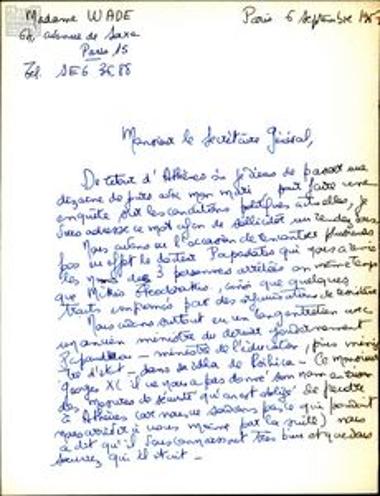 Madame WADE
6, avenue de Saxe
Paris 15
Tél. SEG 3688
Paris 6 Septembre
Monsieur le Secrétaire Général,
De retour d'Athènes où je viens de passer une
dizaine de jours avec mon mari pour faire une
enquête sur les conditions politiques actuelles, je
vous adresse ce mot afin de solliciter un rendez-vous.
Nous avons eu l'occasion de rencontrer plusieurs
fois en effet le docteur qui nous a
les noms des 3 personnes arrêtées en même temps
que Mikis Theodorakis, ainsi que quelques
Nous avons surtout eu un long entretien avec
un ancien ministre du dernier gouvernement
Papandréou – ministre de l'éducation, puis
d'état – dans sa villa de – Ce monsieur
Georges X( il ne nous a pas donné son nom
des mesures de sécurité qu'on est obligé de prendre
à Athènes car nous ne savions pas ce qui pouvait
nous arriver à nous même par la suite) nous
a dit qu'il vous connaissait très bien et que vous
sauriez qui il était –